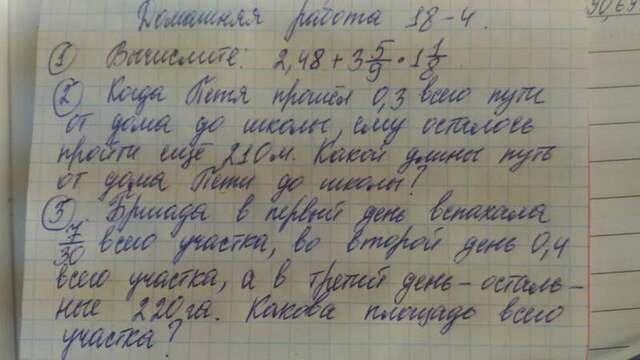 Домашняя работа 18-4.
① Вычислите: 2,48 + 3 5/9 · 1 1/8.
② Когда Петя прошёл 0,3 всего пути
от дома до школы, ему осталось
пройти ещё 210 м. Какой длины путь
от дома Пети до школы?
③. Бригада в первый день вспахала
7/30 всего участка, во второй день 0,4
всего участка, а в третий день - осталь-
ные 220 га. Какова площадь всего
участка?